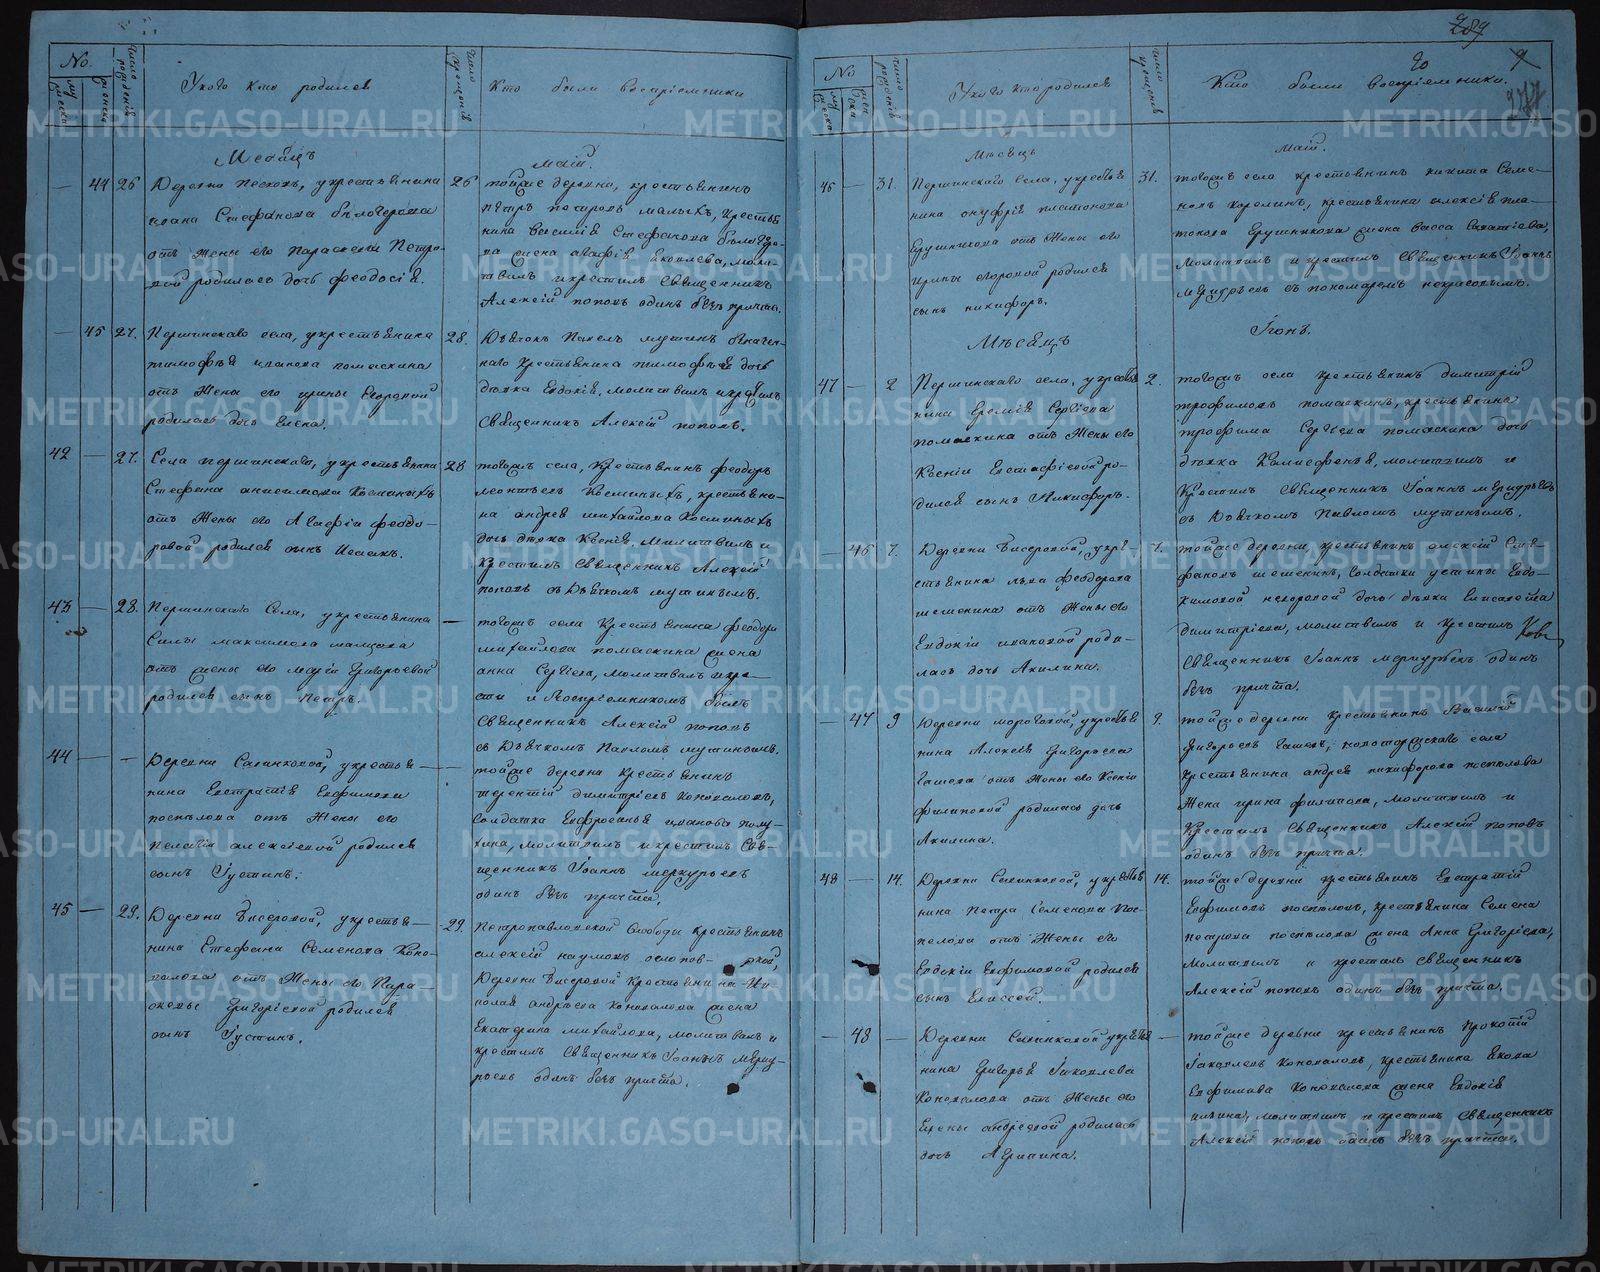 №
мужеска
женска
число рождения
У кого кто родился
число крещения
Кто были восприемники
Месяцъ
маій.
— 44 26
Деревни Песковъ, у крестьянина
ивана Стефанова бѣлоусова
отъ жены его Параскевы Петро-
вой родилась дочь феодосія.
26
тойже деревни, крестьянинъ
крестья-
нина Василія Стефанова
жена агафія Яковлева, моли-
твилъ и крестилъ Священникъ
Алексій поповъ одинъ безъ причта.
— 45 27.
Першинскаго села, у крестьянина
тимофея иванова помаскина
отъ жены его ирины Егоровой
родилась дочь Елена.
28.
Дьячокъ Павелъ мутинъ означен-
наго крестьянина тимофея дочь
дѣвка Евдокія, молитвилъ и крестилъ
Священникъ Алексій поповъ.
42 — 27.
Села першинскаго, у крестьянина
Стефана анисимова Косминыхъ
отъ жены его Агафіи феодо-
ровой родился сынъ Исаакъ.
28
тогожъ села, крестьянинъ феодоръ
леонтьевъ Косминыхъ, крестьяни-
на андрея михайлова Косминыхъ
дочь дѣвка Ксенія, Молитвилъ и
крестилъ Священникъ Алексій
поповъ съ Дьячкомъ мутинымъ.
43 — 28.
Першинскаго Села, у крестьянина
Силы максимова
отъ жены его маріи Григорьевой
родился сынъ Петръ.
—
тогожъ села крестьянина феодора
михайлова помаскина жена
анна Сергіева, Молитвилъ и кре-
сти и Воспріемникомъ былъ
Священникъ Алексій поповъ
съ Дьячкомъ Павломъ мутинымъ.
44 — -
Деревни Савинковой, у крестья-
нина Евстратія Евфимова
поспѣлова отъ жены его
пелагіи алексіевой родился
сынъ Іустинъ.
—
тойже деревни крестьянинъ
терентій димитріевъ Коноваловъ,
Солдатка Евфросинья иванова полу-
хина, молитвилъ и крестилъ Свя-
щенникъ Іоаннъ меркурьевъ
одинъ безъ причта.
45 — 29.
Деревни Бисеровой, у крестья-
нина Стефана Семенова Коно-
валова отъ жены его Пара-
скевы Григоріевой родился
сынъ Іустинъ.
29.
Петропавловской Слободы крестьянинъ
алексій наумовъ
Деревни Бисеровой крестьянина Ни-
колая андреева Коновалова жена
Екатерина михайлова, молитвилъ и
крестилъ Священникъ Іоаннъ мерку-
рьевъ одинъ безъ причта.
289
277
№
мужеска
женска
число рождения
У кого кто родился
число крещения
Кто были восприемники.
Мѣсяцъ
маій.
46 — 31.
Першинскаго села, у крестья-
нина онуфрія платонова
Ярушникова отъ жены его
ирины егоровой родился
сынъ никифоръ.
31.
тогожъ села крестьянинъ никита Семе-
новъ корелинъ, крестьянина алексія пла-
тонова Ярушникова жена васса
молитвилъ и крестилъ священникъ Іоаннъ
меркурьевъ съ пономаремъ некрасовымъ.
Мѣсяцъ
Іюнь.
47 — 2
Першинскаго села, у крестья-
нина Еремія Сергіева
помаскина отъ жены его
Ксеніи Евстафіевой ро-
дился сынъ Никифоръ.
2.
тогожъ села крестьянинъ димитрій
трофимовъ помаскинъ, крестьянина
трофима Сергіева помаскина дочь
дѣвка молитвилъ и
крестилъ священникъ Іоаннъ меркурьевъ
съ Дьячкомъ Павломъ мутинымъ.
— 46 7.
Деревни Бисеровой, у кре-
стьянина льва феодорова
шеменина отъ жены его
Евдокіи ивановой роди-
лась дочь Акилина.
7.
тойже деревни крестьянинъ алексій Сте-
фановъ шеменинъ, Солдатки устиньи Евдо-
кимовой дочь дѣвка Елисавета
димитріева, молитвилъ и крестилъ
Священникъ Іоаннъ меркурьевъ одинъ
безъ причта.
— 47 9
Деревни моревской, у крестья-
нина Алексія Григорьева
Гашева отъ жены его Ксеніи
филиповой родилась дочь
Акилина.
9.
тойже деревни крестьянинъ Василій
Григорьевъ Гашевъ, села
крестьянина андрея никифорова поспѣлова
жена ирина филипова, молитвилъ и
крестилъ Священникъ Алексій поповъ
одинъ безъ причта.
48 — 14.
Деревни Савинковой, у крестья-
нина Петра Семенова Пос-
пелова отъ жены его
Евдокіи Евфимовой родился
сынъ Елисей.
14.
тойже деревни крестьянинъ Евстратій
Евфимовъ поспѣловъ, крестьянина Семена
петрова поспѣлова жена Анна Григоріева,
молитвилъ и крестилъ священникъ
Алексій поповъ одинъ безъ причта.
— 48 —
Деревни Савинковой у крестья-
нина Григорья Іаковлева
Коновалова отъ жены его
Елены андреевой родилась
дочь Агрипина.
—
тойже деревни крестьянинъ Прокопій
Іаковлевъ Коноваловъ, крестьянина Якова
Евфимова Коновалова жена Евдокія
ильина, молитвилъ и крестилъ священникъ
Алексій поповъ одинъ безъ причта.
METRIKI.GASO-URAL.RU